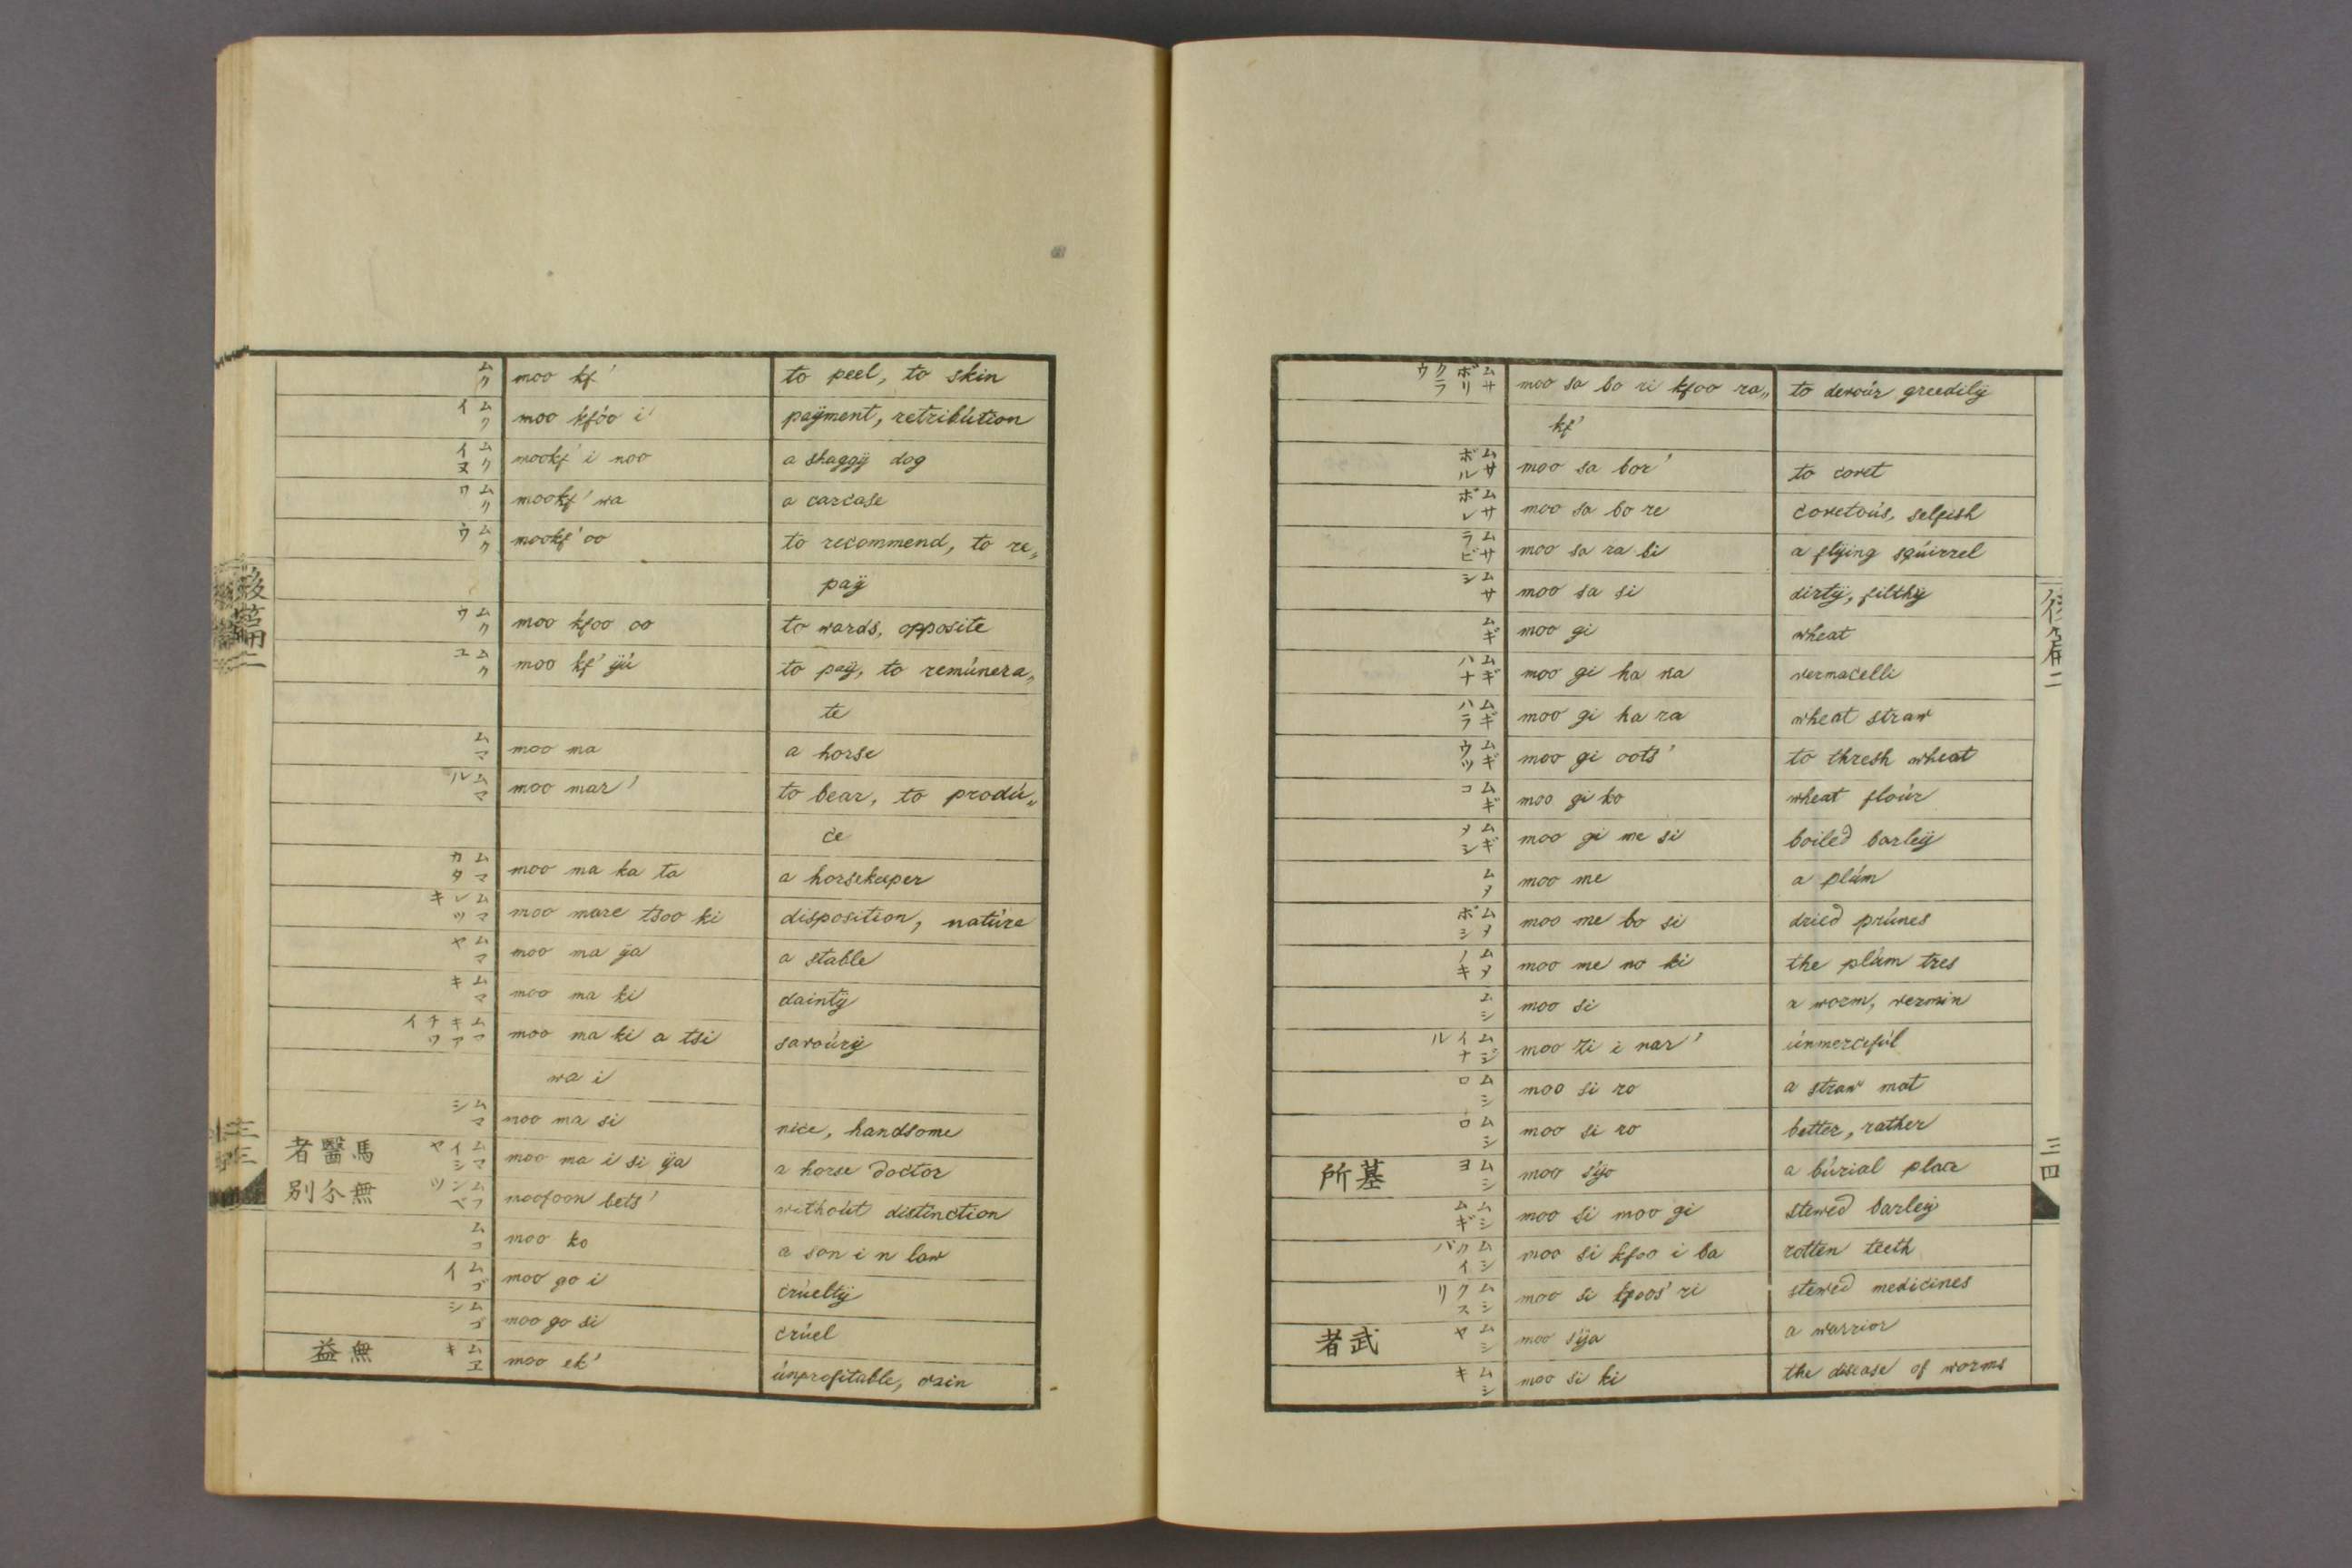 ムク moo kf' to peel, to skin
ムクイ moo kfóo i paÿment, retribútion
ムクイヌ mookf' i noo a shaggÿ dog
ムクワ mookf' wa a carcase
ムクウ mookf' oo to recommend, to re„
paÿ
ムクウ moo kfoo oo to wards, opposite
ムクユ moo kf' ÿú to paÿ, to remúnera„
te
ムマ moo ma a horse
ムマル moo mar' to bear, to prodú„
ce
ムマカタ moo ma ka ta a horsekeeper
ムマレツキ moo mare tsoo ki disposition, natúre
ムマヤ moo ma ÿa a stable
ムマキ moo ma ki daintÿ
ムマキアチワイ moo ma ki a tsi savoúrÿ
wa i
ムマシ moo ma si nice, handsome
者醫馬 ムマイシヤ moo ma i si ÿa a horse doctor
別分無 ムフンベツ moofoon bets' withoút distinction
ムコ moo ko a son i n law
ムゴイ moo go i crúeltÿ
ムゴシ moo go si crúel
益無 ムエキ moo ek' únprofitable, vain
後篇二
三三
ムサボリクラウ moo sa bo ri kfoo ra„ to devoúr greedilÿ
kf'
ムサボル moo sa bor' to covet
ムサボレ moo sa bo re covetoús, selfish
ムサラビ moo sa ra bi a flÿing sqúirrel
ムサシ moo sa si dirtÿ, filthÿ
ムギ moo gi wheat
ムギハナ moo gi ha na vermacelli
ムギハラ moo gi ha ra wheat straw
ムギウツ moo gi oots' to thresh wheat
ムギコ moo gi ko wheat floúr
ムギメシ moo gi me si boiled barleÿ
ムメ moo me a plúm
ムメボシ moo me bo si dried prúnes
ムメノキ moo me no ki the plúm tres
ムシ moo si a worm, vermin
ムジイナル moo zi i nar' únmercifúl
ムシロ moo si ro a straw mat
ムシロ moo si ro better, rather
所墓 ムシヨ moo sÿo a búrial place
ムシムギ moo si moo gi stewed barleÿ
ムシクイバ moo si kfoo i ba rotten teeth
ムシクスリ moo si kfoos' ri stewed medicines
者武 ムシヤ moo sÿa a warrior
ムシキ moo si ki the disease of worms
三四